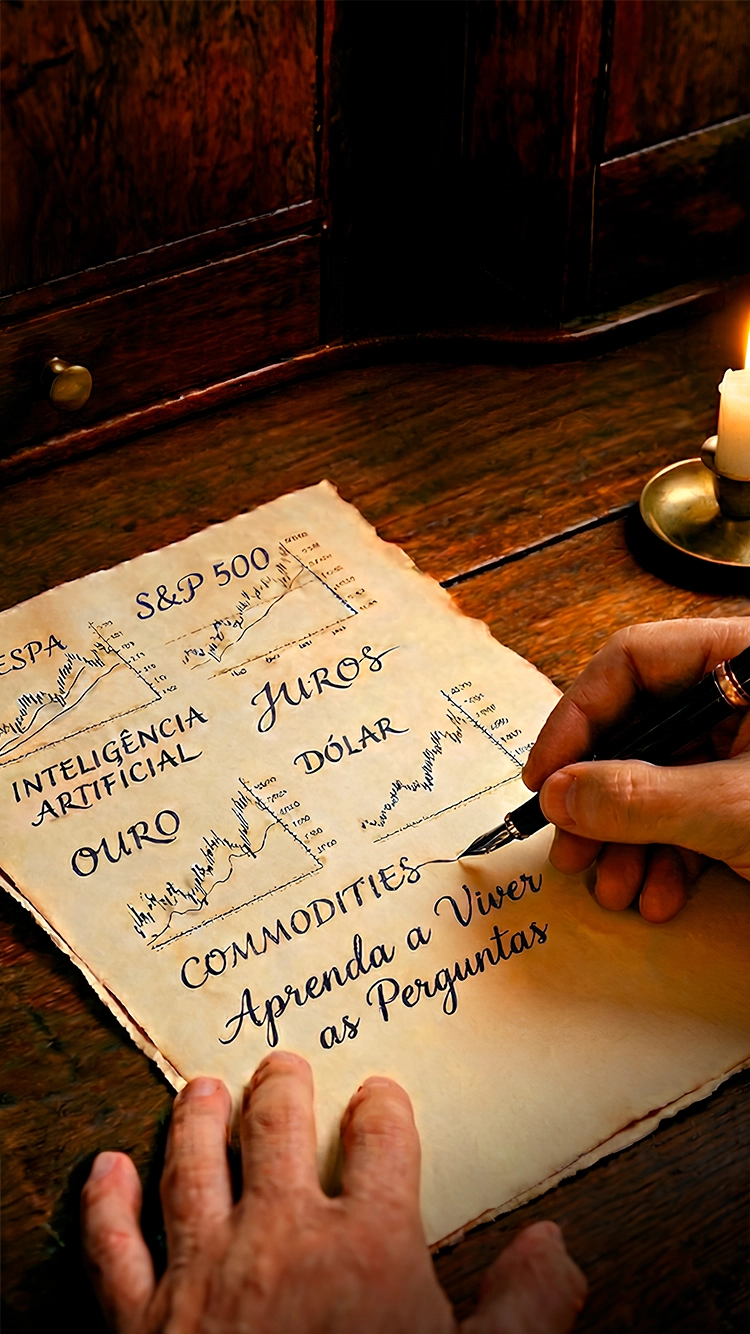 ESPA
S&P 500
JUROS
INTELIGÊNCIA
ARTIFICIAL
DÓLAR
OURO
COMMODITIES
Aprenda a Viver
as Perguntas